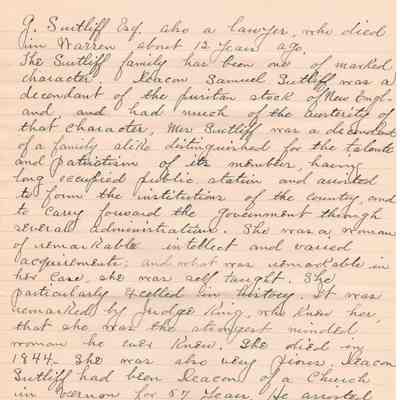 J. Sutliff Esq. also a lawyer, who died
in Warren about 12 years ago.
The Sutliff family has been one of marked
character. Deacon Samuel Sutliff was a
decendant of the puritan stock of New Engl-
and, and had much of the austerity of
that character, Mrs Sutliff was a decendant
of a family alike distinguished for the talents
and patriotism of its member, having
long occupied public station and assisted
to form the institutions of the country, and
to carry forward the Government through
several administrations. She was a woman
of remarkable intellect and varied
acquirements; and what was remarkable in
her case, she was self taught. She
particularly excelled in history. It was
remarked by Judge King, who knew her,
that she was the strongest minded
woman he ever knew. She died in
1844. She was also very pious. Deacon
Sutliff had been Deacon of a Church
in Vernon for 57 years. He assisted